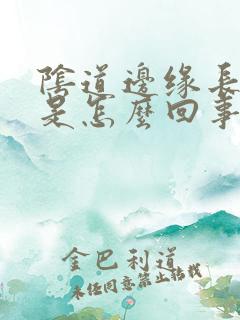 陰道邊缘長
是怎麼回事
金巴利道
未经同意禁止转载